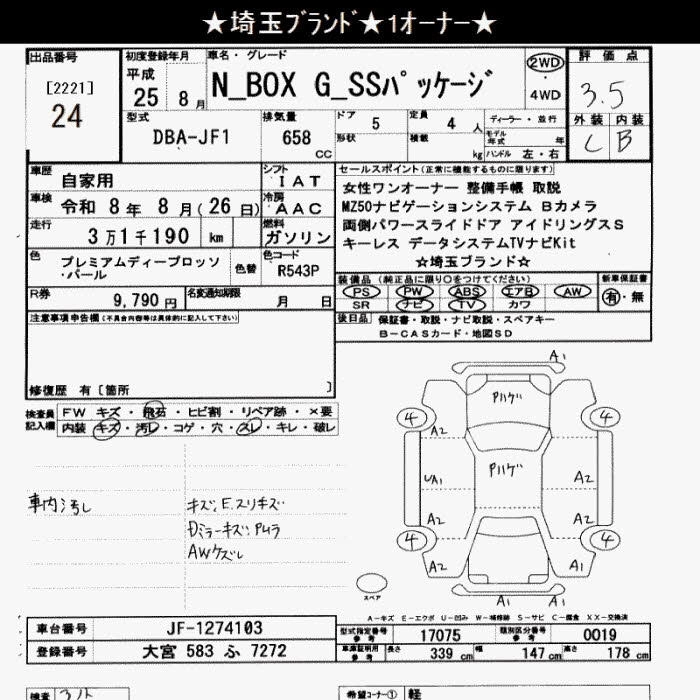 ★埼玉ﾌﾞﾗﾝﾄﾞ★1オーナー★
出品番号
[2221]
24
初度登録年月
平成
25 8 月
車名・グレード
N_BOX G_SSﾊﾟｯｹｰｼﾞ
2WD
4WD
評価点
3.5
外装 内装
C B
型式
DBA-JF1
排気量
658
CC
ドア
5
形状
定員
4 人
積載
kg
ディーラー・並行
モデル年式 年
ハンドル 左・右
車歴
自家用
車検
令和 8年 8月(26日)
走行
3万1千190 km
色
プレミアムディープロッソ
・パール
色替
シフト
IAT
冷房
AAC
燃料
ガソリン
色コード
R543P
セールスポイント(正常に機能するものに限ります)
女性ワンオーナー 整備手帳 取説
MZ50ナビゲーションシステム Bカメラ
両側パワースライドドア アイドリングスS
キーレス データシステムTVナビKit
☆埼玉ブランド☆
R券
9,790 円
名変通知期限
月 日
装備品(純正品に限り○をつけてください)
PS PW ABS エアB AW
SR ナビ TV カワ
新車保証書
有・無
後日品 保証書・取説・ナビ取説・スペアキー
B-CASカード・地図SD
注意事項申告欄(不具合内容等は具体的に記入して下さい)
修復歴 有[箇所 ]
検査員
記入欄
FW キズ・飛石・ヒビ割・リペア跡・×要
内装 キズ・汚レ・コゲ・穴・スレ・キレ・破レ
車内汚し
キズ、E.スリキズ
Dミラーキズ Pムラ
AWケズレ
A1
Pハゲ
4 4
A2 A2
Pハゲ
UA1 A2
A2 A2
4 4
A2 A1
A1 A1
スペア
A-キズ E-エクボ U-凹み W-補修跡 S-サビ C-腐食 XX-交換済
車台番号
JF-1274103
登録番号
大宮 583 ふ 7272
型式指定番号
参考
17075
類別区分番号
参考
0019
車庫証明用
参考
長さ
339 cm
幅
147 cm
高さ
178 cm
検査
希望コーナー① 軽